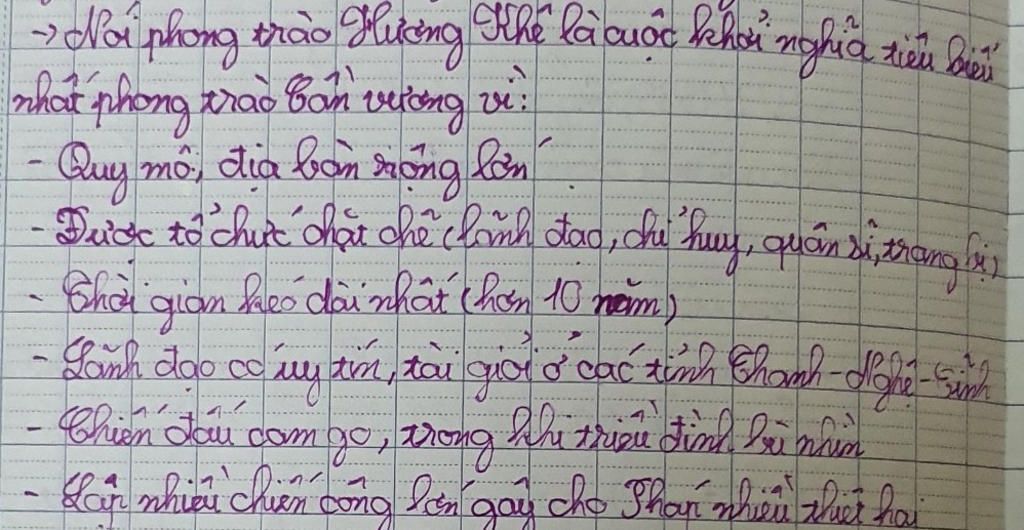 → Nói phong trào Hương Khê là cuộc khởi nghĩa tiêu biểu
nhất phong trào Cần vương vì:
- Quy mô, địa bàn rộng lớn
- Được tổ chức chặt chẽ (lãnh đạo, chỉ huy, quân sĩ, trang bị)
- Thời gian kéo dài nhất (hơn 10 năm)
- Lãnh đạo có uy tín, tài giỏi ở các tỉnh Thanh - Nghệ - Tĩnh
- Chiến đấu cam go, trong khi triều đình
- Lập nhiều chiến công lớn gây cho Pháp nhiều thiệt hại